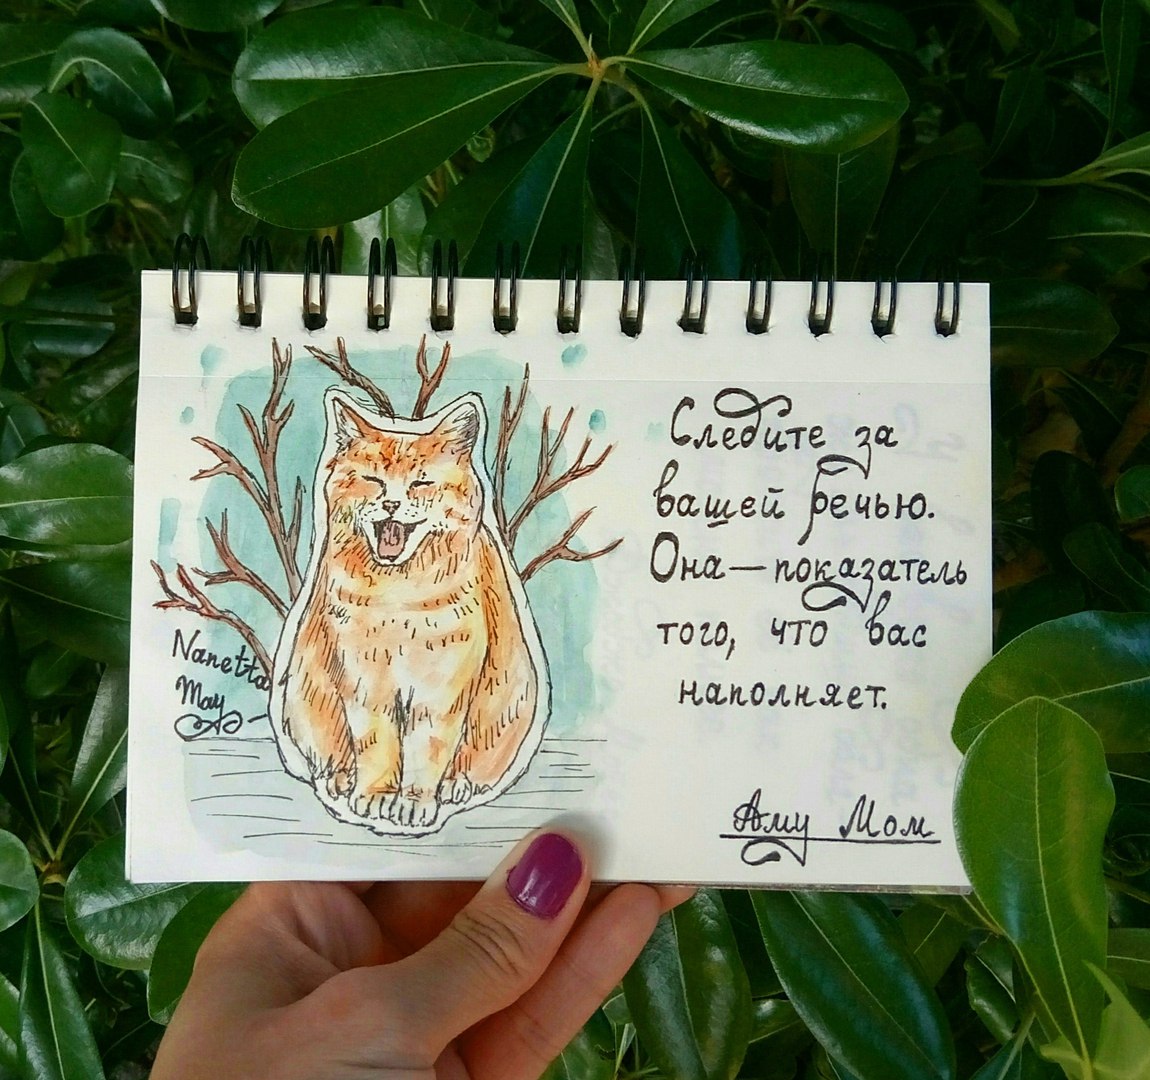 Nanetta
May
Следите за
вашей речью.
Она — показатель
того, что вас
наполняет.
Аму Мом